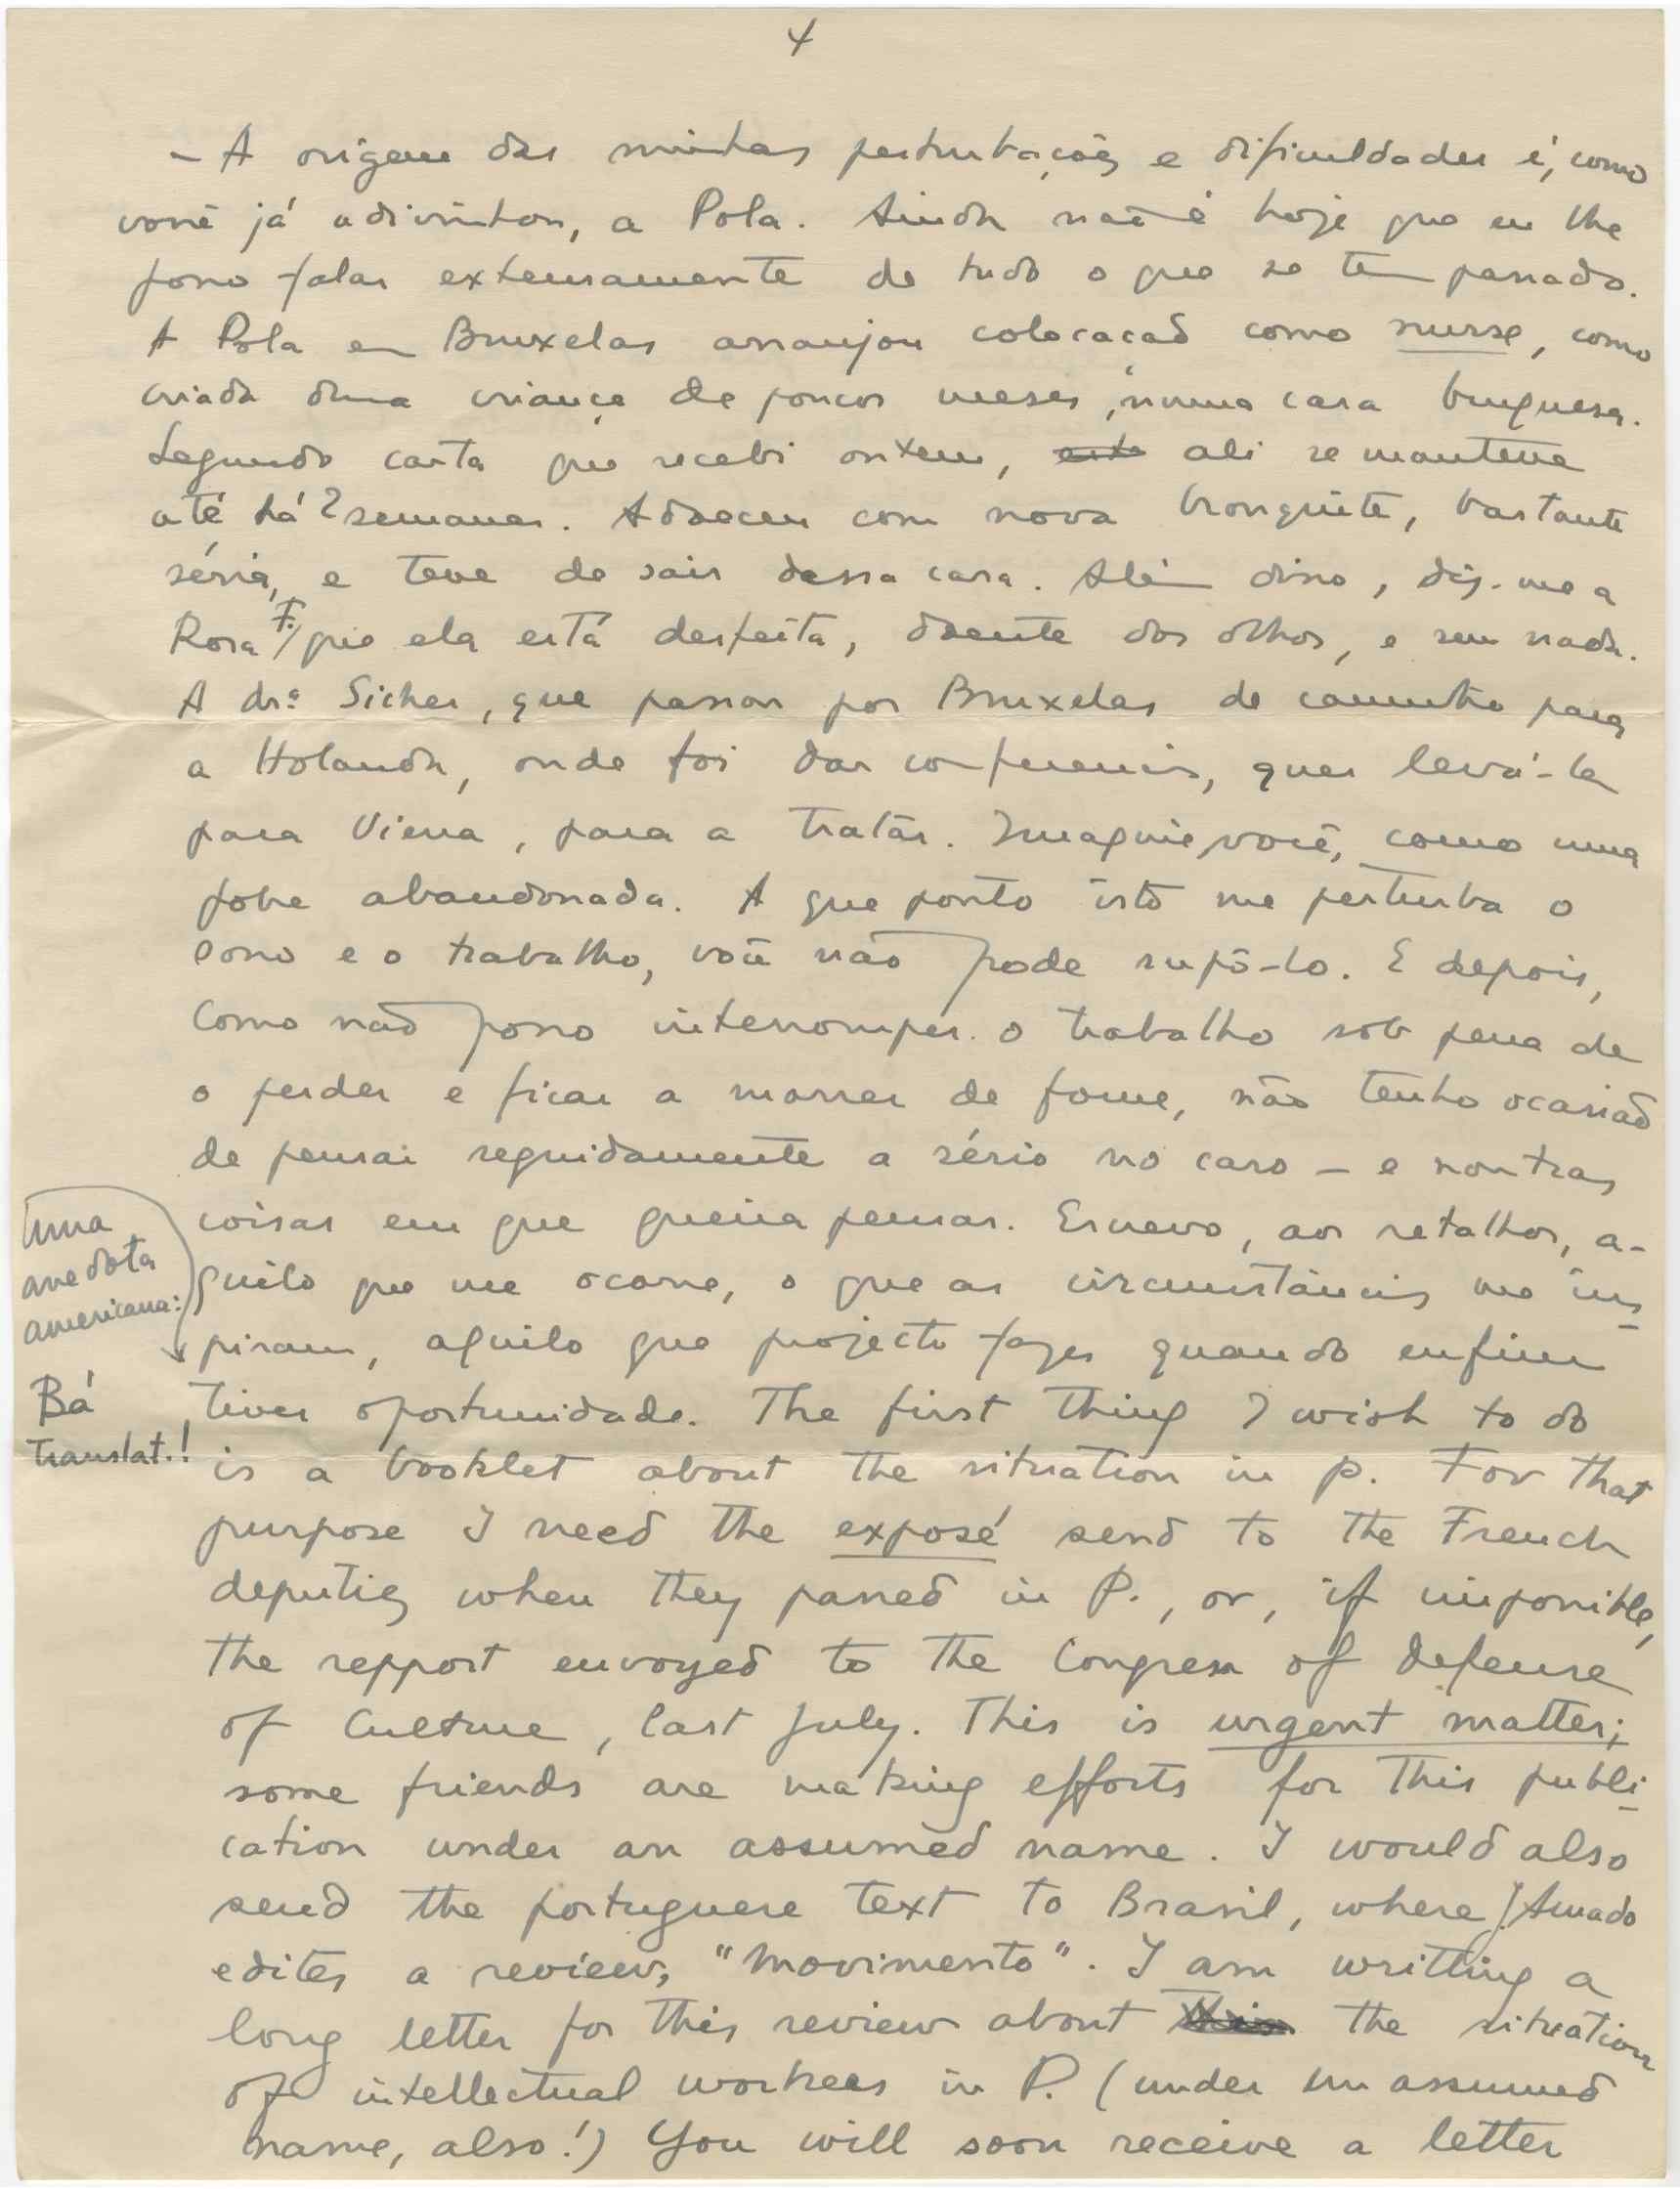 4
- A origem das minhas perturbações e dificuldades é, como
você já adivinhou, a Pola. Ainda não é hoje que eu lhe
posso falar extensamente de tudo o que se tem passado.
A Pola em Bruxelas arranjou colocação como nurse, como
criada duma criança de poucos meses, numa casa burguesa.
Segundo carta que recebi ontem, ali se manteve
até há 2 semanas. Adoeceu com nova bronquite, bastante
séria, e teve de sair dessa casa. Além disso, diz-me a
Rosa F. que ela está desfeita, doente dos olhos, e sem nada.
A drª Sicher, que passou por Bruxelas de caminho para
a Holanda, onde foi dar conferencias, quer levá-la
para Viena, para a tratar. Imagine você, como uma
pobre abandonada. A que ponto isto me perturba o
sono e o trabalho, você não pode supô-lo. E depois,
como não posso interromper o trabalho sob pena de
o perder e ficar a morrer de fome, não tenho ocasião
de pensar seguidamente a sério no caso - e noutras
coisas em que queira pensar. Escrevo, aos retalhos, a-
quilo que me ocorre, o que as circunstâncias me ins-
piram, aquilo que projecto fazer quando enfim
tiver oportunidade. The first thing I wish to do
is a booklet about the situation in P. For that
purpose I need the exposé send to the French
deputies when they passed in P., or, if impossible,
the repport envoyed to the Congress of Defense
of Culture, last July. This is urgent matter;
some friends are making efforts for this publi-
cation under an assumed name. I would also
send the portuguese text to Brasil, where J. Amado
edites a review, "Movimento". I am writting a
long letter for this review about the situation
of intellectual workers in P. (under un assumed
name, also!) You will soon receive a letter
Uma
anedota
americana:
Bá
translat.!